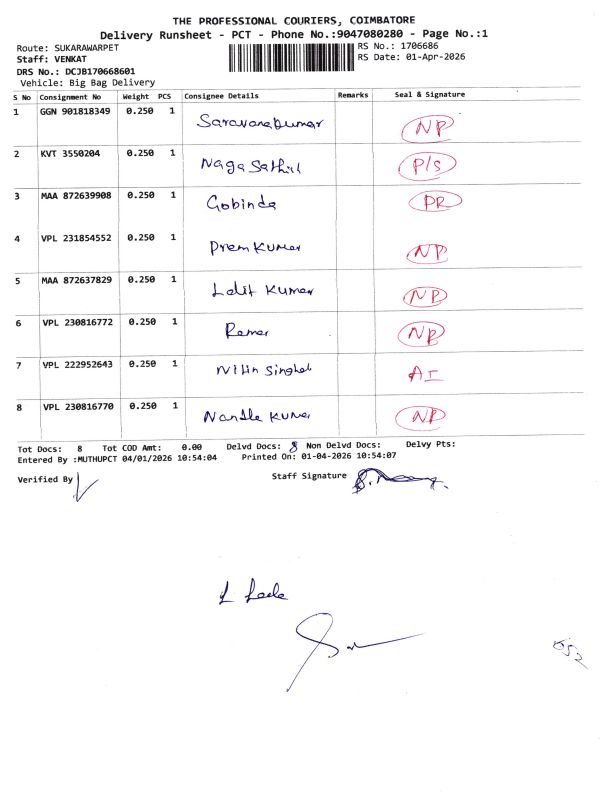 THE PROFESSIONAL COURIERS, COIMBATORE
Delivery Runsheet - PCT - Phone No.:9047080280 - Page No.:1
Route: SUKARAWARPET RS No.: 1706686
Staff: VENKAT RS Date: 01-Apr-2026
DRS No.: DCJB170668601
Vehicle: Big Bag Delivery
S No Consignment No Weight PCS Consignee Details Remarks Seal & Signature
1 GGN 901818349 0.250 1 Saravanakumar NP
2 KVT 3550204 0.250 1 Naga Sathish P/S
3 MAA 872639908 0.250 1 Gobinda PR
4 VPL 231854552 0.250 1 Prem Kumar NP
5 MAA 872637829 0.250 1 Lalit Kumar NP
6 VPL 230816772 0.250 1 Ramar NP
7 VPL 222952643 0.250 1 Nitin Singhal AI
8 VPL 230816770 0.250 1 Kumar NP
Tot Docs: 8 Tot COD Amt: 0.00 Delvd Docs: 8 Non Delvd Docs: Delvy Pts:
Entered By :MUTHUPCT 04/01/2026 10:54:04 Printed On: 01-04-2026 10:54:07
Verified By Staff Signature